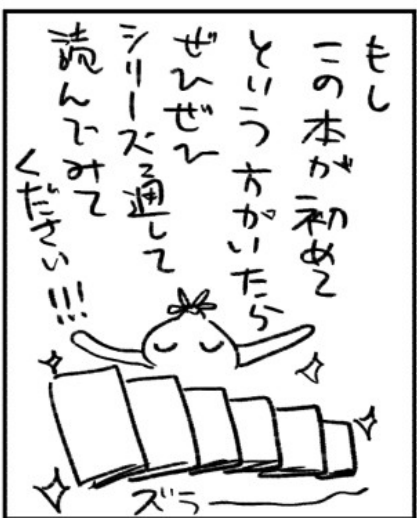 もし
この本が初めて
という方がいたら
ぜひぜひ
シリーズ通して
読んでみて
ください!!!
ズラ